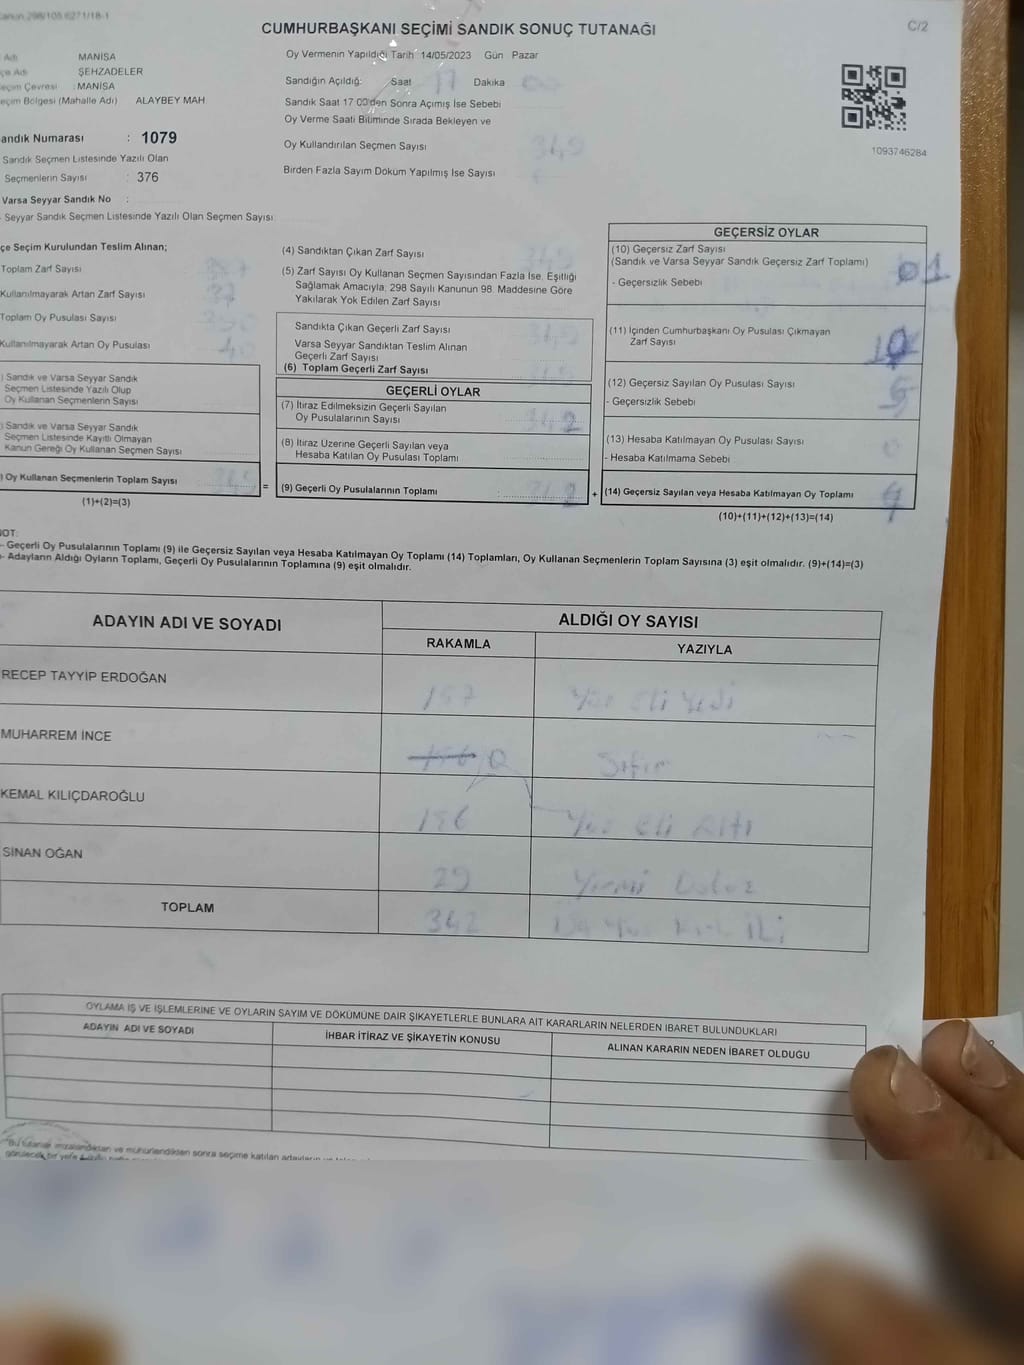 CUMHURBAŞKANI SEÇİMİ SANDIK SONUÇ TUTANAĞI
C/2
Adı MANİSA
ŞEHZADELER
Seçim Çevresi : MANİSA
Seçim Bölgesi (Mahalle Adı) ALAYBEY MAH
Sandık Numarası : 1079
Sandık Seçmen Listesinde Yazılı Olan
Seçmenlerin Sayısı : 376
Varsa Seyyar Sandık No :
- Seyyar Sandık Seçmen Listesinde Yazılı Olan Seçmen Sayısı
Oy Vermenin Yapıldığı Tarih 14/05/2023 Gün Pazar
Sandığın Açıldığı: Saat 17 Dakika 00
Sandık Saat 17 00'den Sonra Açımış İse Sebebi
Oy Verme Saati Bitiminde Sırada Bekleyen ve
Oy Kullandırılan Seçmen Sayısı 349
Birden Fazla Sayım Döküm Yapılmış İse Sayısı
1093746284
İlçe Seçim Kurulundan Teslim Alınan;
Toplam Zarf Sayısı
Kullanılmayarak Artan Zarf Sayısı 37
Toplam Oy Pusulası Sayısı
Kullanılmayarak Artan Oy Pusulası 40
) Sandık ve Varsa Seyyar Sandık
Seçmen Listesinde Yazılı Olup
Oy Kullanan Seçmenlerin Sayısı
) Sandık ve Varsa Seyyar Sandık
Seçmen Listesinde Kayıtlı Olmayan
Kanun Gereği Oy Kullanan Seçmen Sayısı
) Oy Kullanan Seçmenlerin Toplam Sayısı 349 =
(1)+(2)=(3)
(4) Sandıktan Çıkan Zarf Sayısı 349
(5) Zarf Sayısı Oy Kullanan Seçmen Sayısından Fazla İse, Eşitliği
Sağlamak Amacıyla, 298 Sayılı Kanunun 98. Maddesine Göre
Yakılarak Yok Edilen Zarf Sayısı
Sandıkta Çıkan Geçerli Zarf Sayısı 349
Varsa Seyyar Sandıktan Teslim Alınan
Geçerli Zarf Sayısı
(6) Toplam Geçerli Zarf Sayısı 349
GEÇERLİ OYLAR
(7) İtiraz Edilmeksizin Geçerli Sayılan
Oy Pusulalarının Sayısı 342
(8) İtiraz Üzerine Geçerli Sayılan veya
Hesaba Katılan Oy Pusulası Toplamı
(9) Geçerli Oy Pusulalarının Toplamı : 342 +
GEÇERSİZ OYLAR
(10) Geçersiz Zarf Sayısı
(Sandık ve Varsa Seyyar Sandık Geçersiz Zarf Toplamı)
- Geçersizlik Sebebi
(11) İçinden Cumhurbaşkanı Oy Pusulası Çıkmayan
Zarf Sayısı
(12) Geçersiz Sayılan Oy Pusulası Sayısı
- Geçersizlik Sebebi
(13) Hesaba Katılmayan Oy Pusulası Sayısı 0
- Hesaba Katılmama Sebebi
(14) Geçersiz Sayılan veya Hesaba Katılmayan Oy Toplamı
(10)+(11)+(12)+(13)=(14)
NOT:
- Geçerli Oy Pusulalarının Toplamı (9) ile Geçersiz Sayılan veya Hesaba Katılmayan Oy Toplamı (14) Toplamları, Oy Kullanan Seçmenlerin Toplam Sayısına (3) eşit olmalıdır. (9)+(14)=(3)
- Adayların Aldığı Oyların Toplamı, Geçerli Oy Pusulalarının Toplamına (9) eşit olmalıdır.
ADAYIN ADI VE SOYADI ALDIĞI OY SAYISI
RAKAMLA YAZIYLA
RECEP TAYYİP ERDOĞAN 157 Yüz Eli Yedi
MUHARREM İNCE 0 Sıfır
KEMAL KILIÇDAROĞLU 156 Yüz Eli Altı
SİNAN OĞAN 29 Yirmi Dokuz
TOPLAM 342
OYLAMA İŞ VE İŞLEMLERİNE VE OYLARIN SAYIM VE DÖKÜMÜNE DAİR ŞİKAYETLERLE BUNLARA AİT KARARLARIN NELERDEN İBARET BULUNDUKLARI
ADAYIN ADI VE SOYADI İHBAR İTİRAZ VE ŞİKAYETİN KONUSU ALINAN KARARIN NEDEN İBARET OLDUĞU
"Bu tutanak imzalandıktan ve mühürlendikten sonra seçime katılan adayların